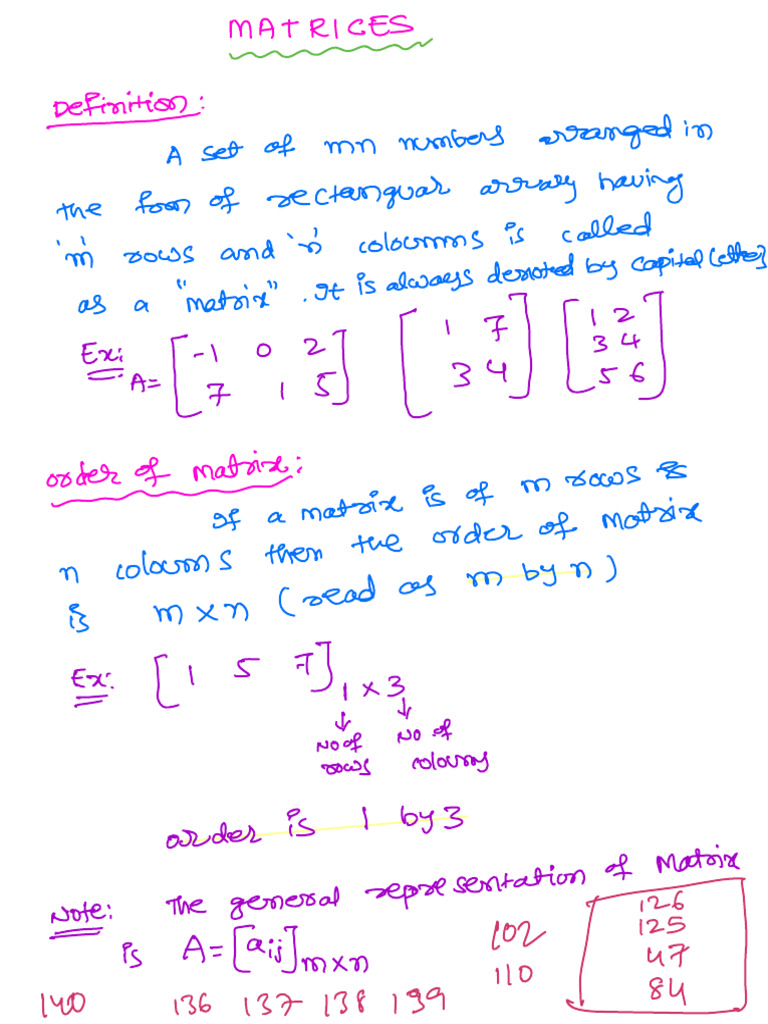 MATRICES
Definition:
A set of mn numbers arranged in
the form of rectanguar array having
'm' rows and 'n' coloumns is called
as a "matrix". It is always denoted by capital letters
Ex: A= [ -1 0 2 ] [ 1 7 ] [ 1 2 ]
[ 7 1 5 ] [ 3 4 ] [ 3 4 ]
[ 5 6 ]
order of matrix:
If a matrix is of m rows &
n coloums then the order of matrix
is m×n (read as m by n)
Ex: [ 1 5 7 ] 1×3
↓ ↓
No of No of
rows coloums
order is 1 by 3
Note: The general representation of Matrix
is A=[aij]m×n
102
110
126
125
47
84
140 136 137 138 139